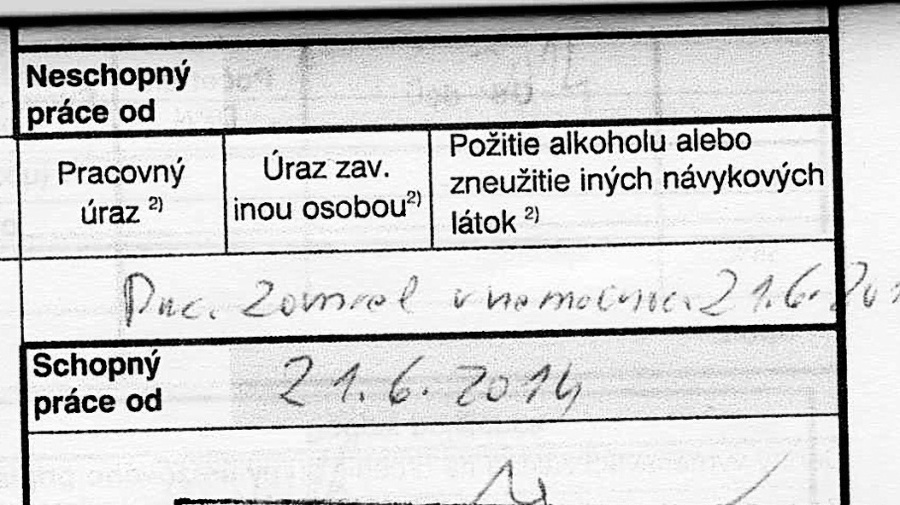 Neschopný
práce od
Pracovný
úraz 2)
Úraz zav.
inou osobou 2)
Požitie alkoholu alebo
zneužitie iných návykových
látok 2)
Pac. zomrel v nemocnici 21.6.201
Schopný
práce od
21.6.2014